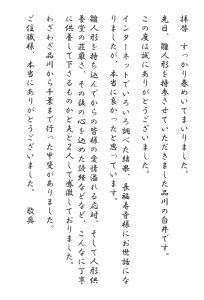 拝啓　すっかり春めいてまいりました。
先日、雛人形を持参させていただきました品川の白井です。
この度は誠にありがとうございました。
インターネットでいろいろ調べた結果、長福寿寺にお世話にな
りましたが、本当に良かったと思っています。
雛人形を持ち込んでからの皆様の愛情溢れる応対、そして人形供
養堂の荘厳さ、その後の心を込めた読経などなど、こんなに丁寧
に供養して下さるものかと夫と2人して感激しておりました。
わざわざ品川から千葉まで行った甲斐がありました。
ご住職様、本当にありがとうございました。
敬具